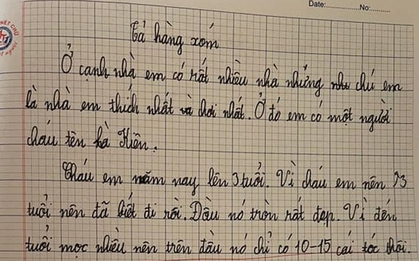 Date: No:
Tả hàng xóm
Ở cạnh nhà em có rất nhiều nhà nhưng nhà chú em
là nhà em thích nhất và chơi nhất. Ở đó em có một người
cháu tên là Hiên.
Cháu em năm nay lên 3 tuổi. Vì cháu em nên 3
tuổi nên đã biết đi rồi. Đầu nó tròn rất đẹp. Vì đến
tuổi mọc nhiều nên trên đầu nó chỉ có 10-15 cái tóc thôi.